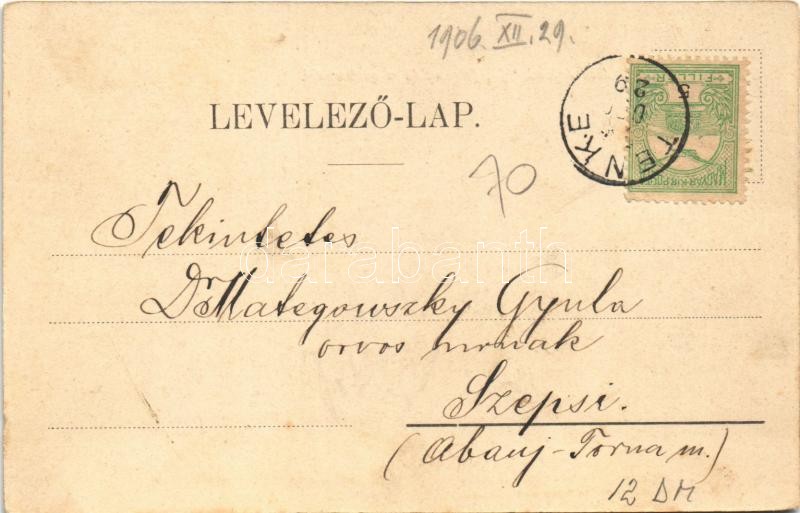 1906. XII. 29.
5
FILLÉR
MAGYAR KIR. POSTA
TENKE
29
LEVELEZŐ-LAP.
70
Tekintetes
Dr Mategowszky Gyula
orvos urnak
Szepsi.
(Abauj-Torna m.)
12 DM
darabanth